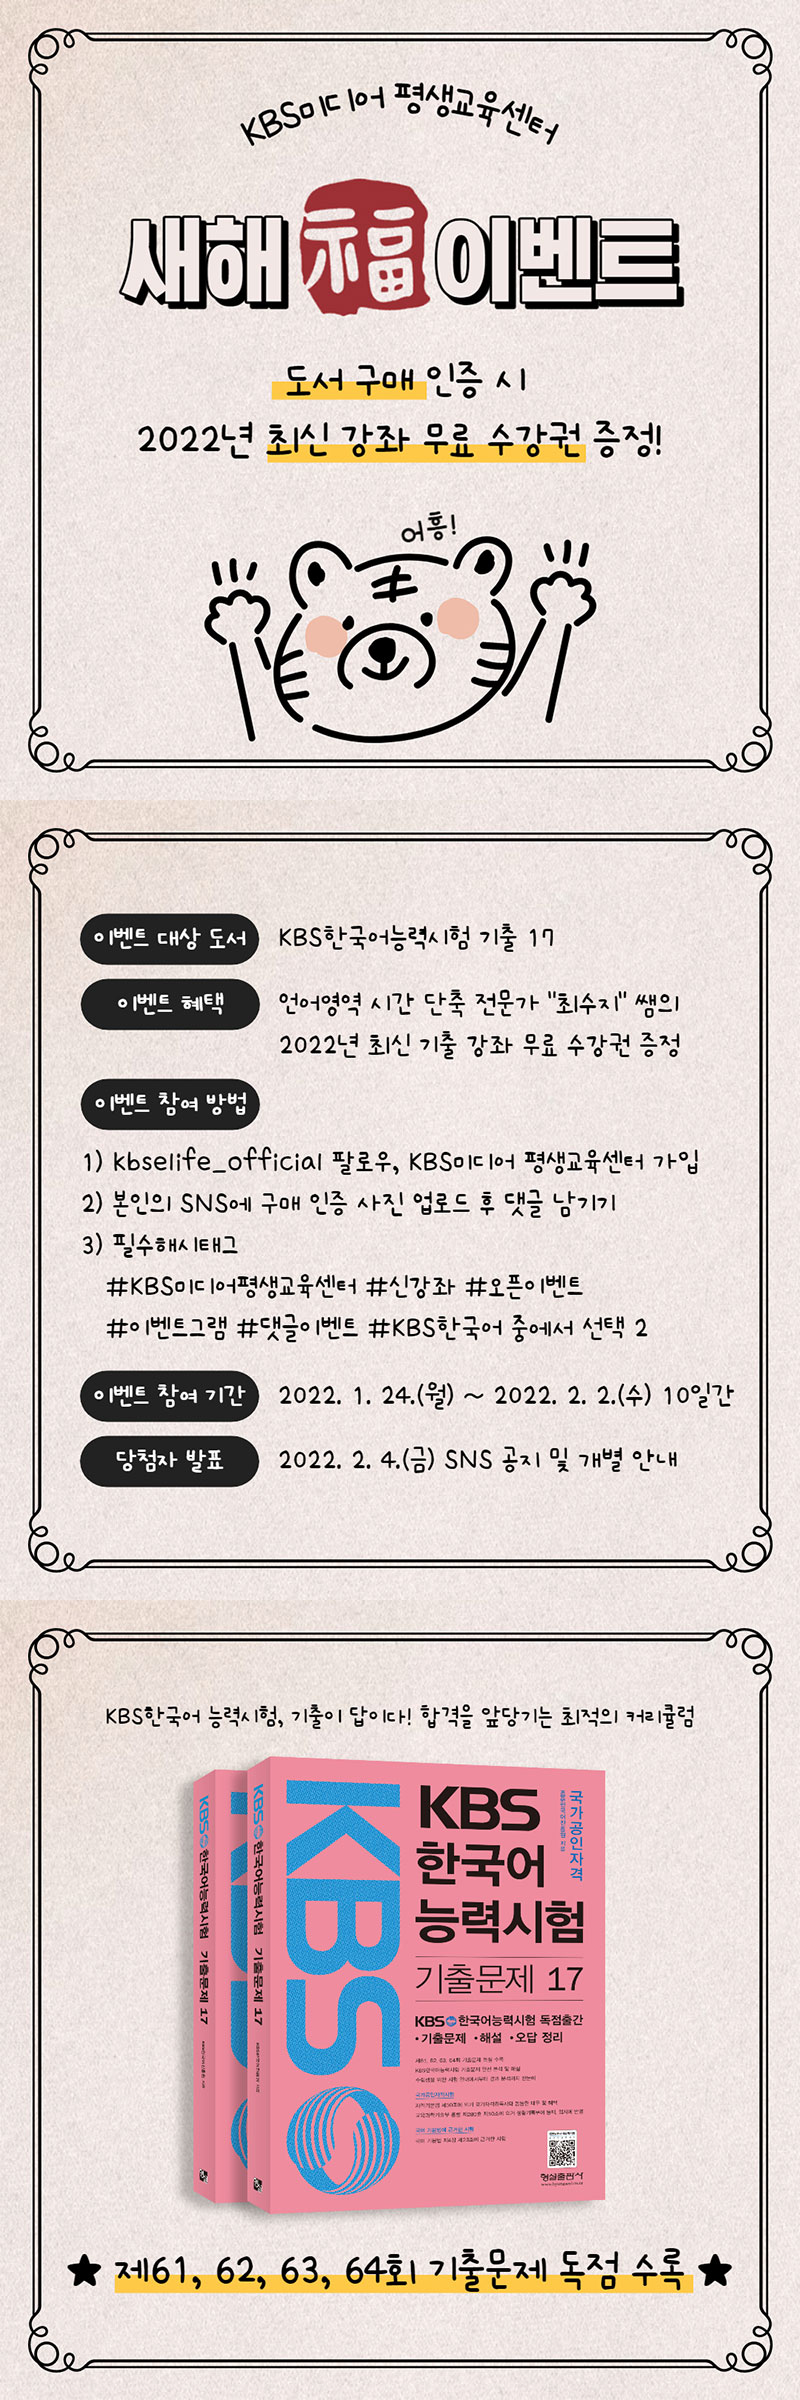 KBS미디어 평생교육센터
새해 福 이벤트
도서 구매 인증 시
2022년 최신 강좌 무료 수강권 증정!
어흥!
이벤트 대상 도서 KBS한국어능력시험 기출 17
이벤트 혜택 언어영역 시간 단축 전문가 "최수지" 쌤의
2022년 최신 기출 강좌 무료 수강권 증정
이벤트 참여 방법
1) kbselife_official 팔로우, KBS미디어 평생교육센터 가입
2) 본인의 SNS에 구매 인증 사진 업로드 후 댓글 남기기
3) 필수해시태그
#KBS미디어평생교육센터 #신강좌 #오픈이벤트
#이벤트그램 #댓글이벤트 #KBS한국어 중에서 선택 2
이벤트 참여 기간 2022. 1. 24.(월) ~ 2022. 2. 2.(수) 10일간
당첨자 발표 2022. 2. 4.(금) SNS 공지 및 개별 안내
KBS한국어 능력시험, 기출이 답이다! 합격을 앞당기는 최적의 커리큘럼
KBS 한국어능력시험 기출문제 17
KBS 한국어능력시험 기출문제 17
KBS
KBS
한국어
능력시험
국가공인자격
기출문제 17
KBS 한국어능력시험 독점출간
•기출문제 •해설 •오답 정리
국가공인자격시험
형설출판사
★ 제61, 62, 63, 64회 기출문제 독점 수록 ★